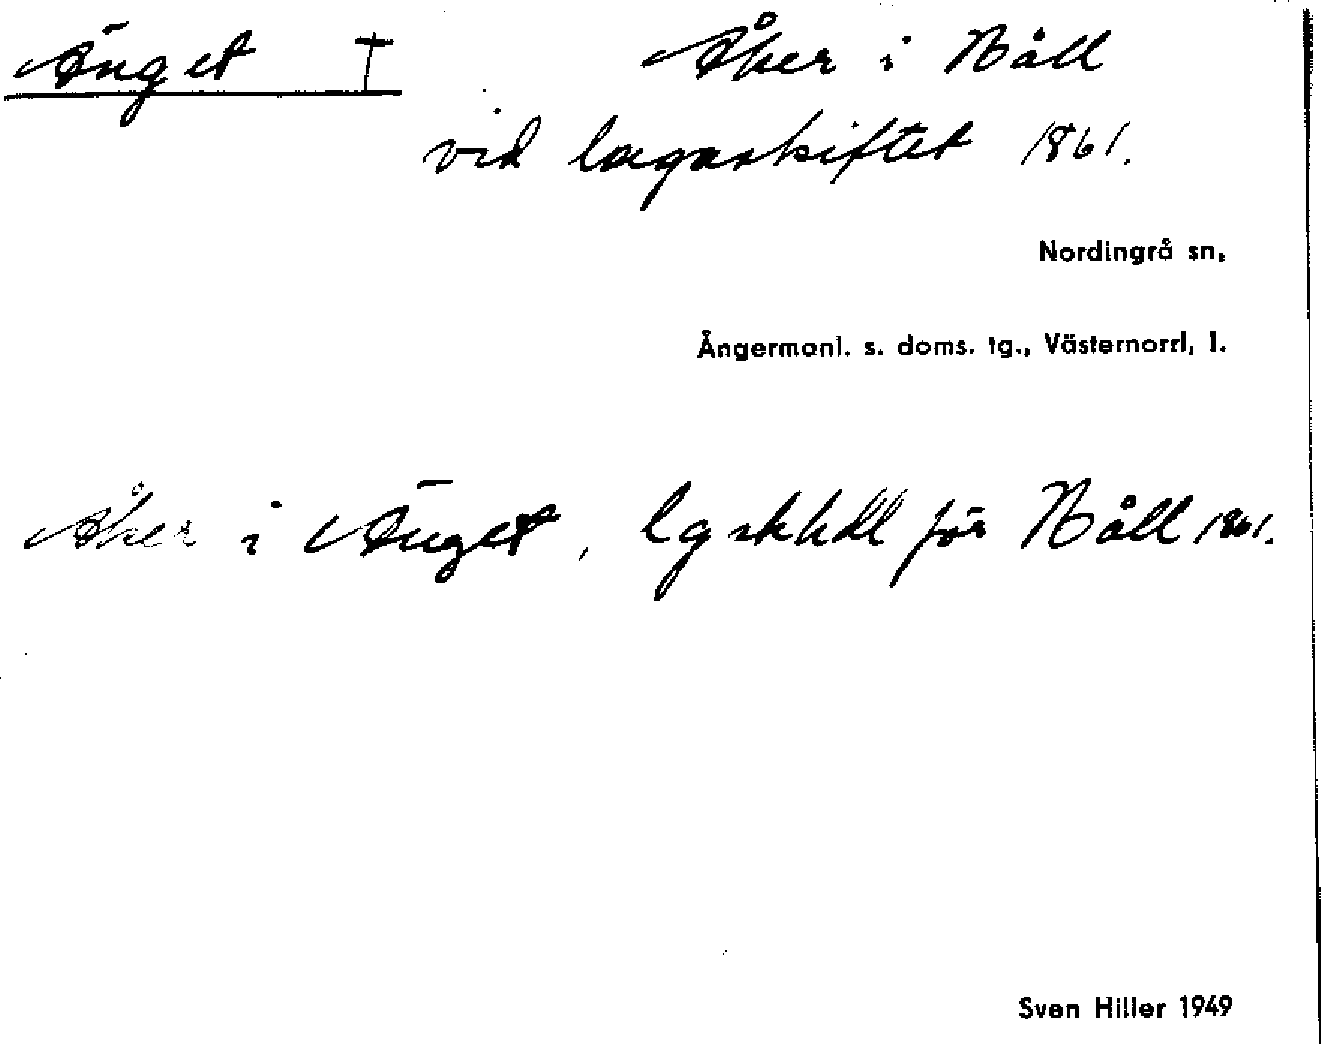 Änget † Åker i Båll
vid lagaskiftet 1861.
Nordingrå sn,
Ångermanl. s. doms. tg., Västernorrl, l.
Åker i Änget, lgskhdl för Båll 1861.
Sven Hiller 1949